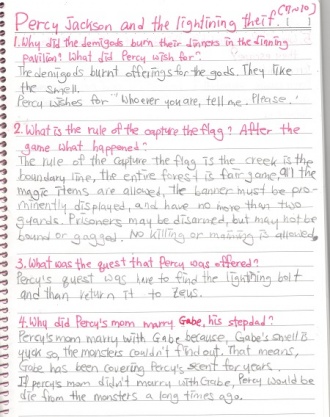 Percy Jackson and the lightining theif. (7~10)
1. Why did the demigods burn their dinners in the dinning
pavilion? What did Percy wish for?
The demigods burnt offerings for the gods. They like
the smell.
Percy wishes for "Whoever you are, tell me. Please."
2. What is the rule of the capture the flag? After the
game what happened?
The rule of the Capture the flag is the creek is the
boundary line, the entire forest is fair game, all the
magic items are allowed, the banner must be pro-
minently displayed, and have no more than two
guards. Prisoners may be disarmed, but may not be
bound or gagged. No killing or maiming is allowed.
3. What was the quest that Percy was offered?
Percy's quest was to find the lightning bolt
and than return it to Zeus.
4. Why did Percy's mom marry Gabe, his stepdad?
Percy's mom marry with Gabe because, Gabe's smell is
yuck so, the monsters couldn't find out. That means,
Gabe has been covering Percy's scent for years.
If percy's mom didn't marry with Gabe, Percy would be
die from the monsters a long times ago.